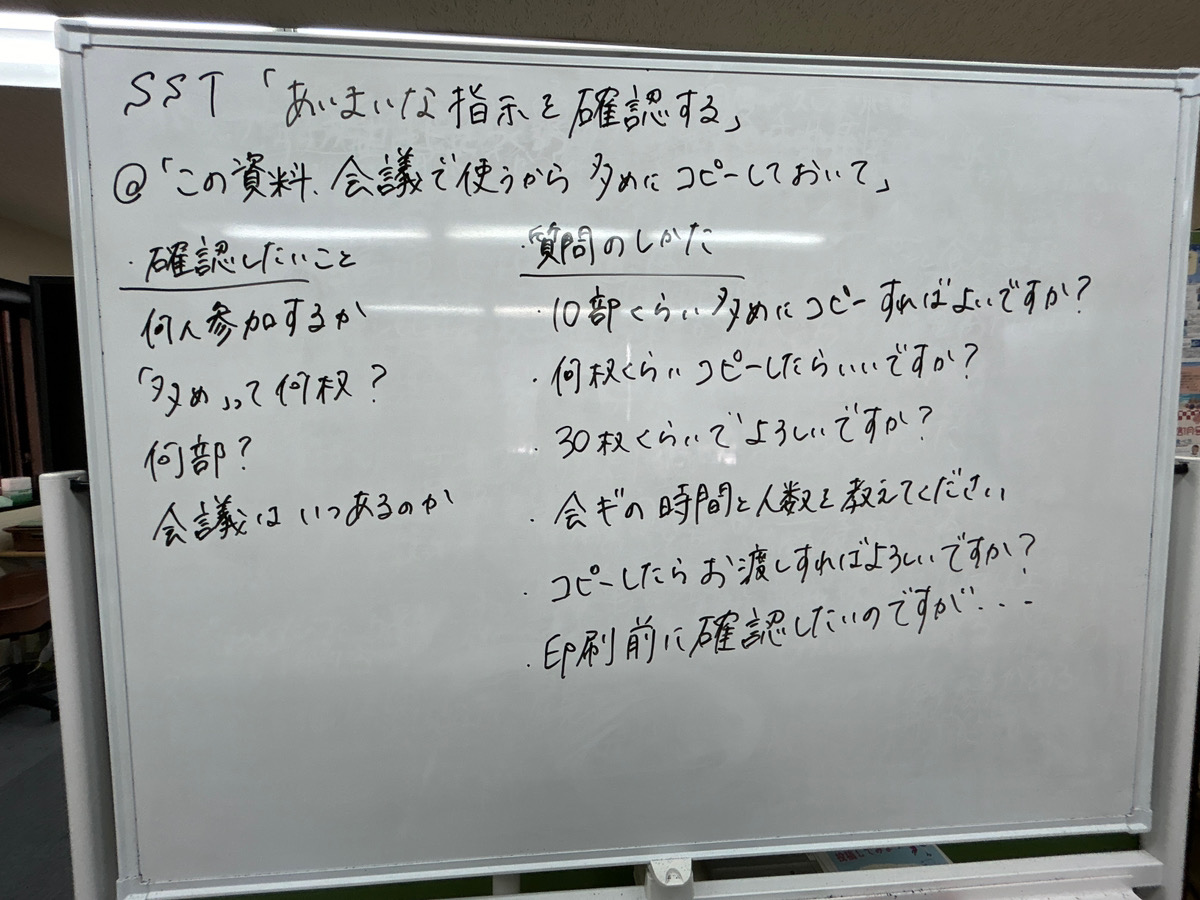 SST「あいまいな指示を確認する」
@「この資料、会議で使うから 多めに コピーしておいて」
・確認したいこと
何人参加するか
「多め」って何枚？
何部？
会議は いつあるのか
・質問のしかた
・10部くらい 多めに コピーすればよいですか？
・何枚くらい コピーしたらいいですか？
・30枚くらいで よろしいですか？
・会ギの 時間と人数を教えてください
・コピーしたら お渡しすればよろしいですか？
・印刷前に確認したいのですが・・・